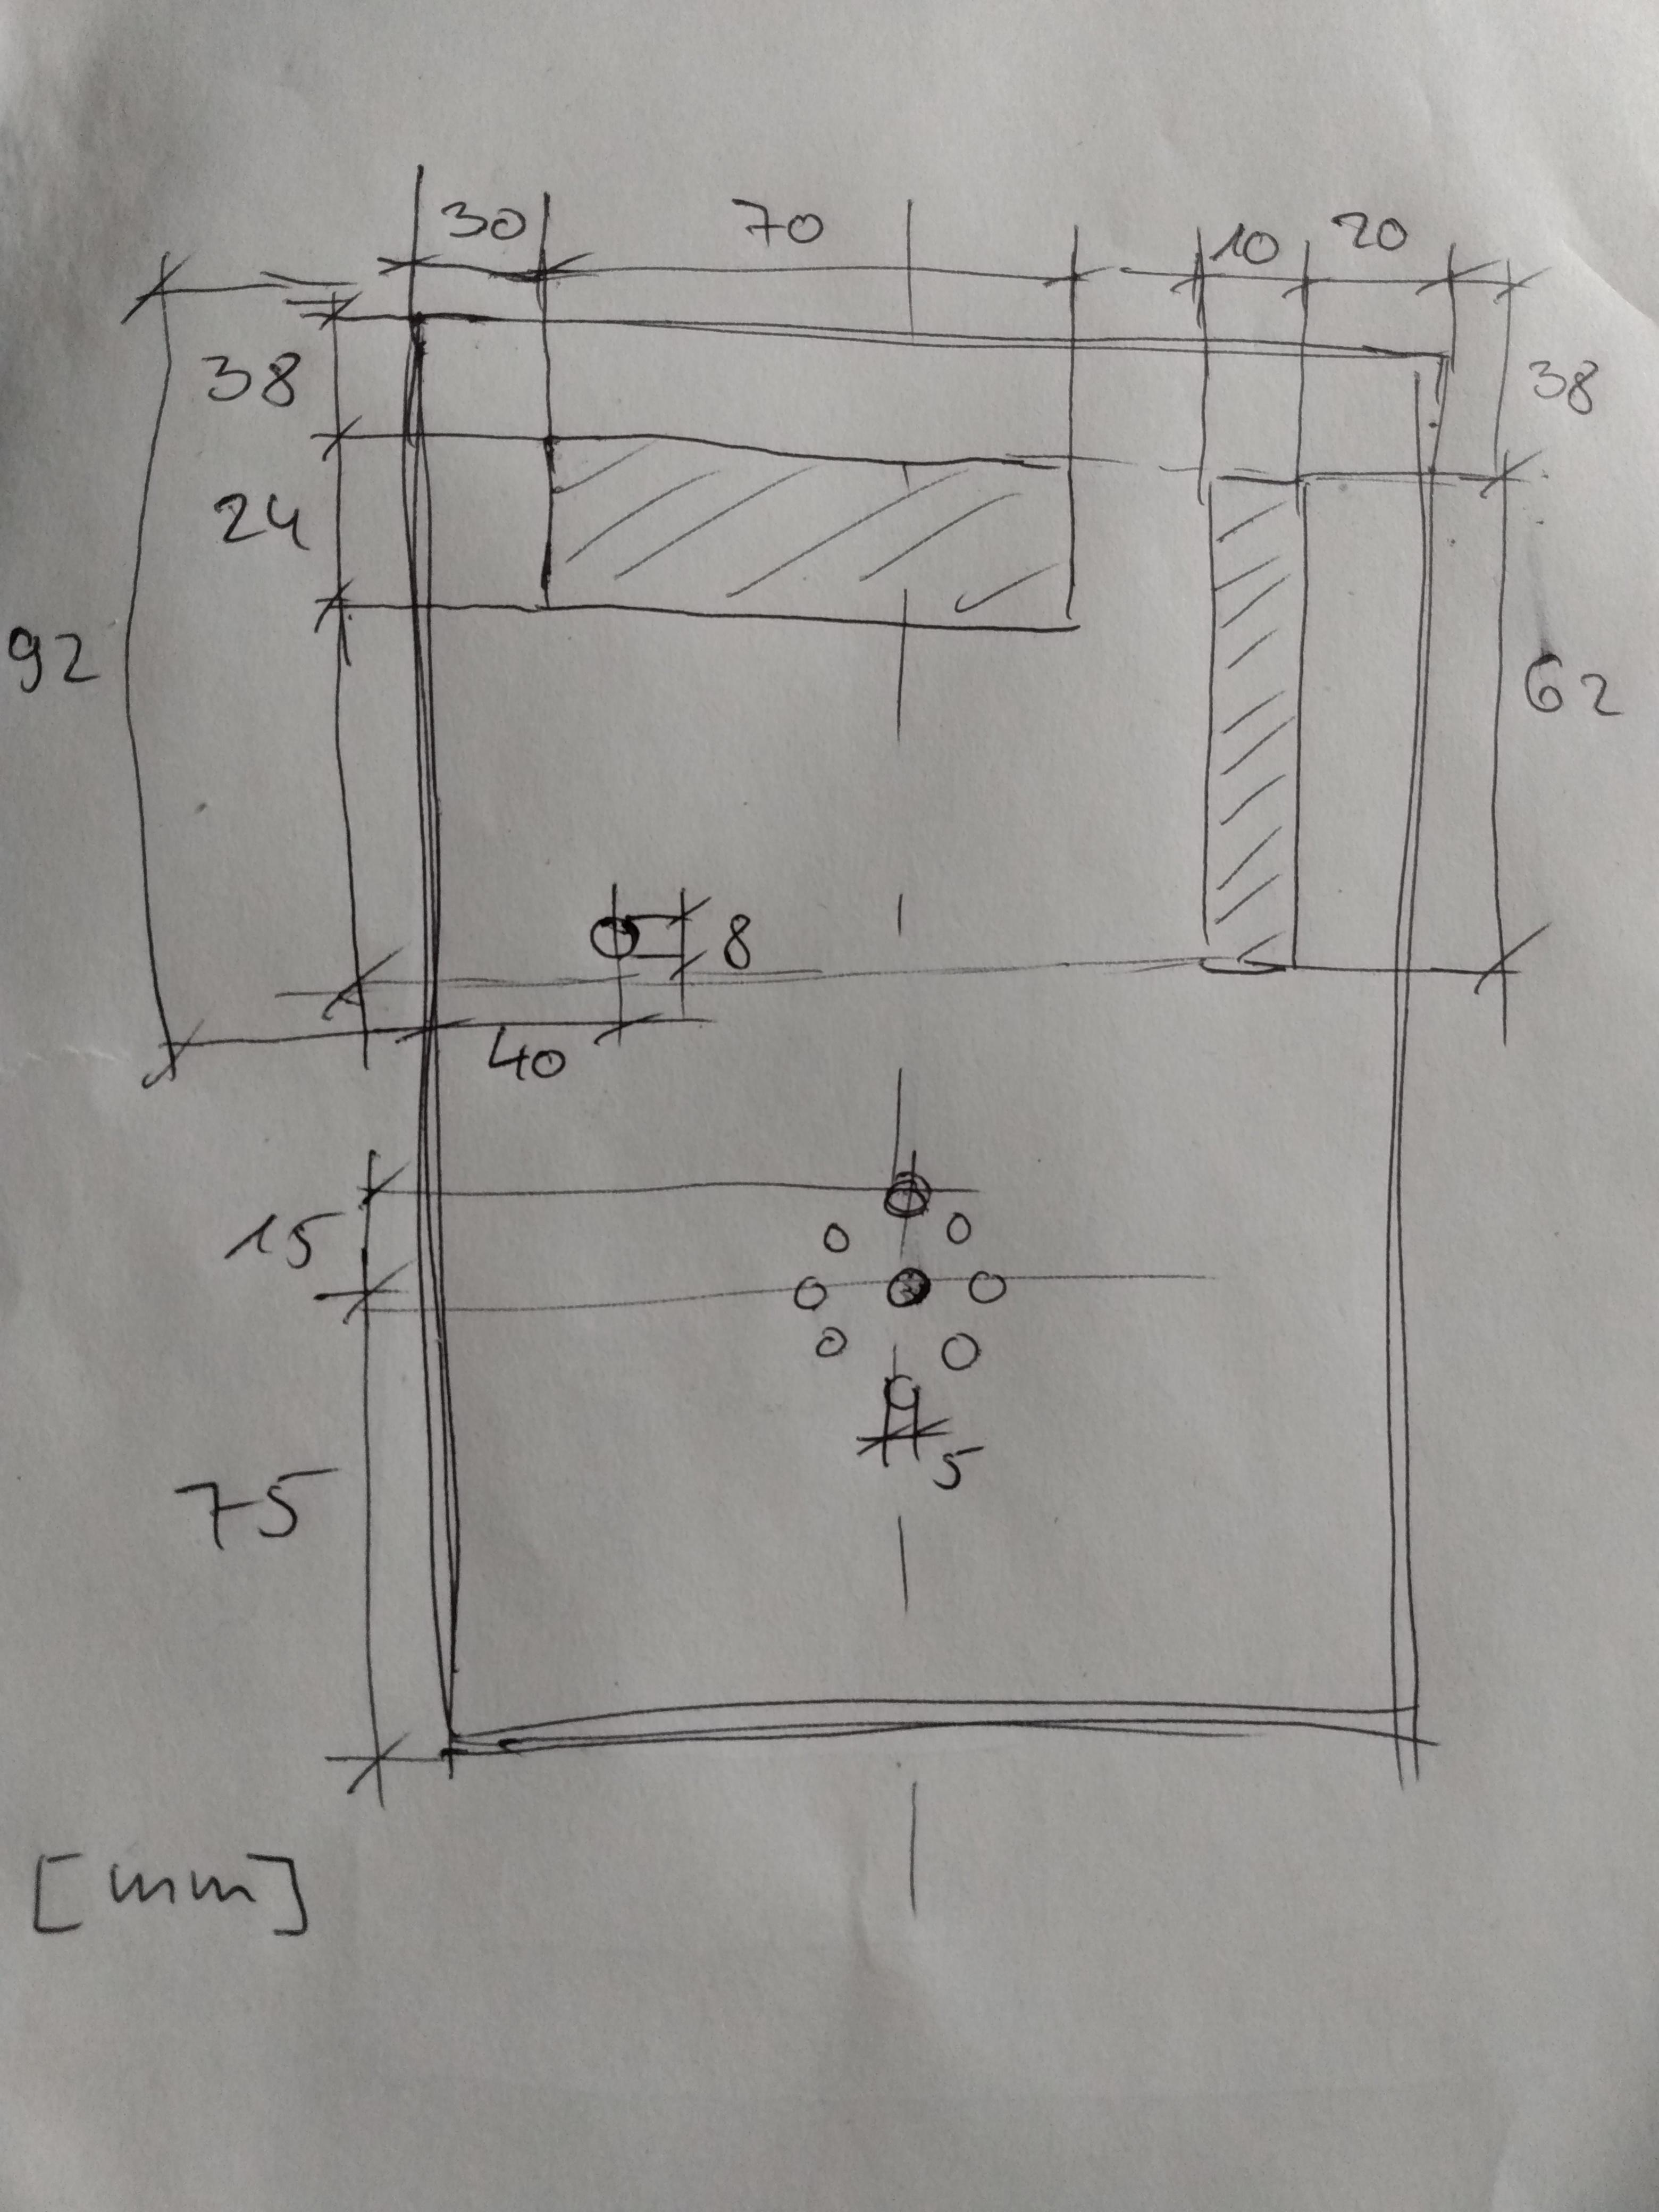 30 70 10 20
38 38
24
92 62
8
40
15
5
75
[mm]